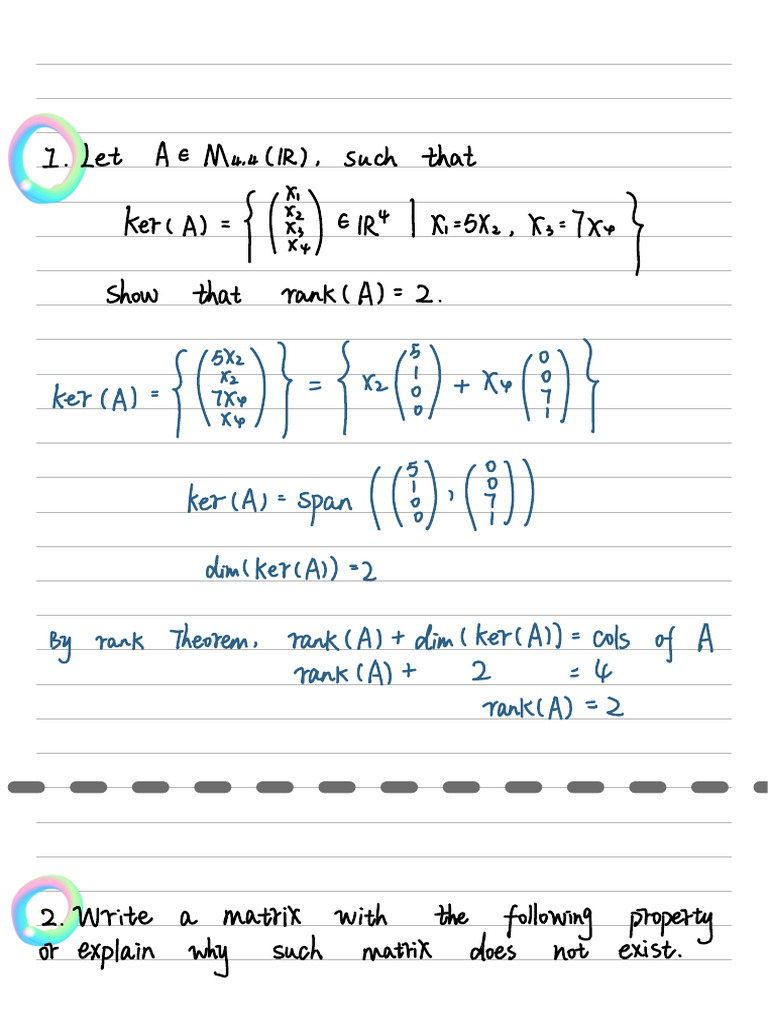 1. Let A ∈ M4.4(IR), such that
ker(A) = { (x1 x2 x3 x4) ∈ IR⁴ | x1=5x2, x3=7x4 }
Show that rank(A)=2.
ker(A) = { (5x2 x2 7x4 x4) } = { x2 (5 1 0 0) + x4 (0 0 7 1) }
ker(A) = span ( (5 1 0 0), (0 0 7 1) )
dim(ker(A)) =2
By rank Theorem, rank(A) + dim(ker(A)) = cols of A
rank(A) + 2 = 4
rank(A) = 2
2. Write a matrix with the following property
or explain why such matrix does not exist.